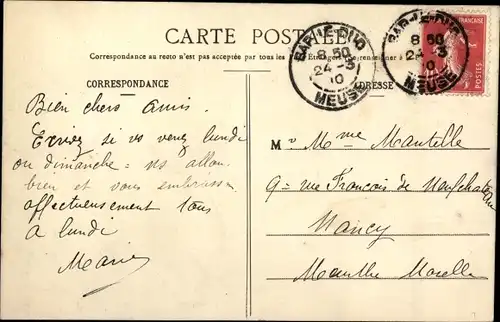 CARTE POSTALE
Correspondance au recto n'est pas acceptée par tous les Étrangers se renseigner à la
CORRESPONDANCE
ADRESSE
BAR-LE-DUC
8 50
24-3
10
MEUSE
BAR-LE-DUC
8 50
24-3
10
MEUSE
FRANÇAISE
POSTES
Bien chers amis
Ecrivez si vs venez lundi
ou dimanche = ns allons
bien et vous embrassons
affectueusement tous
A lundi
Marie
M r Mme Mantille
9 = rue François de Neufchateau
Nancy
Meurthe Moselle